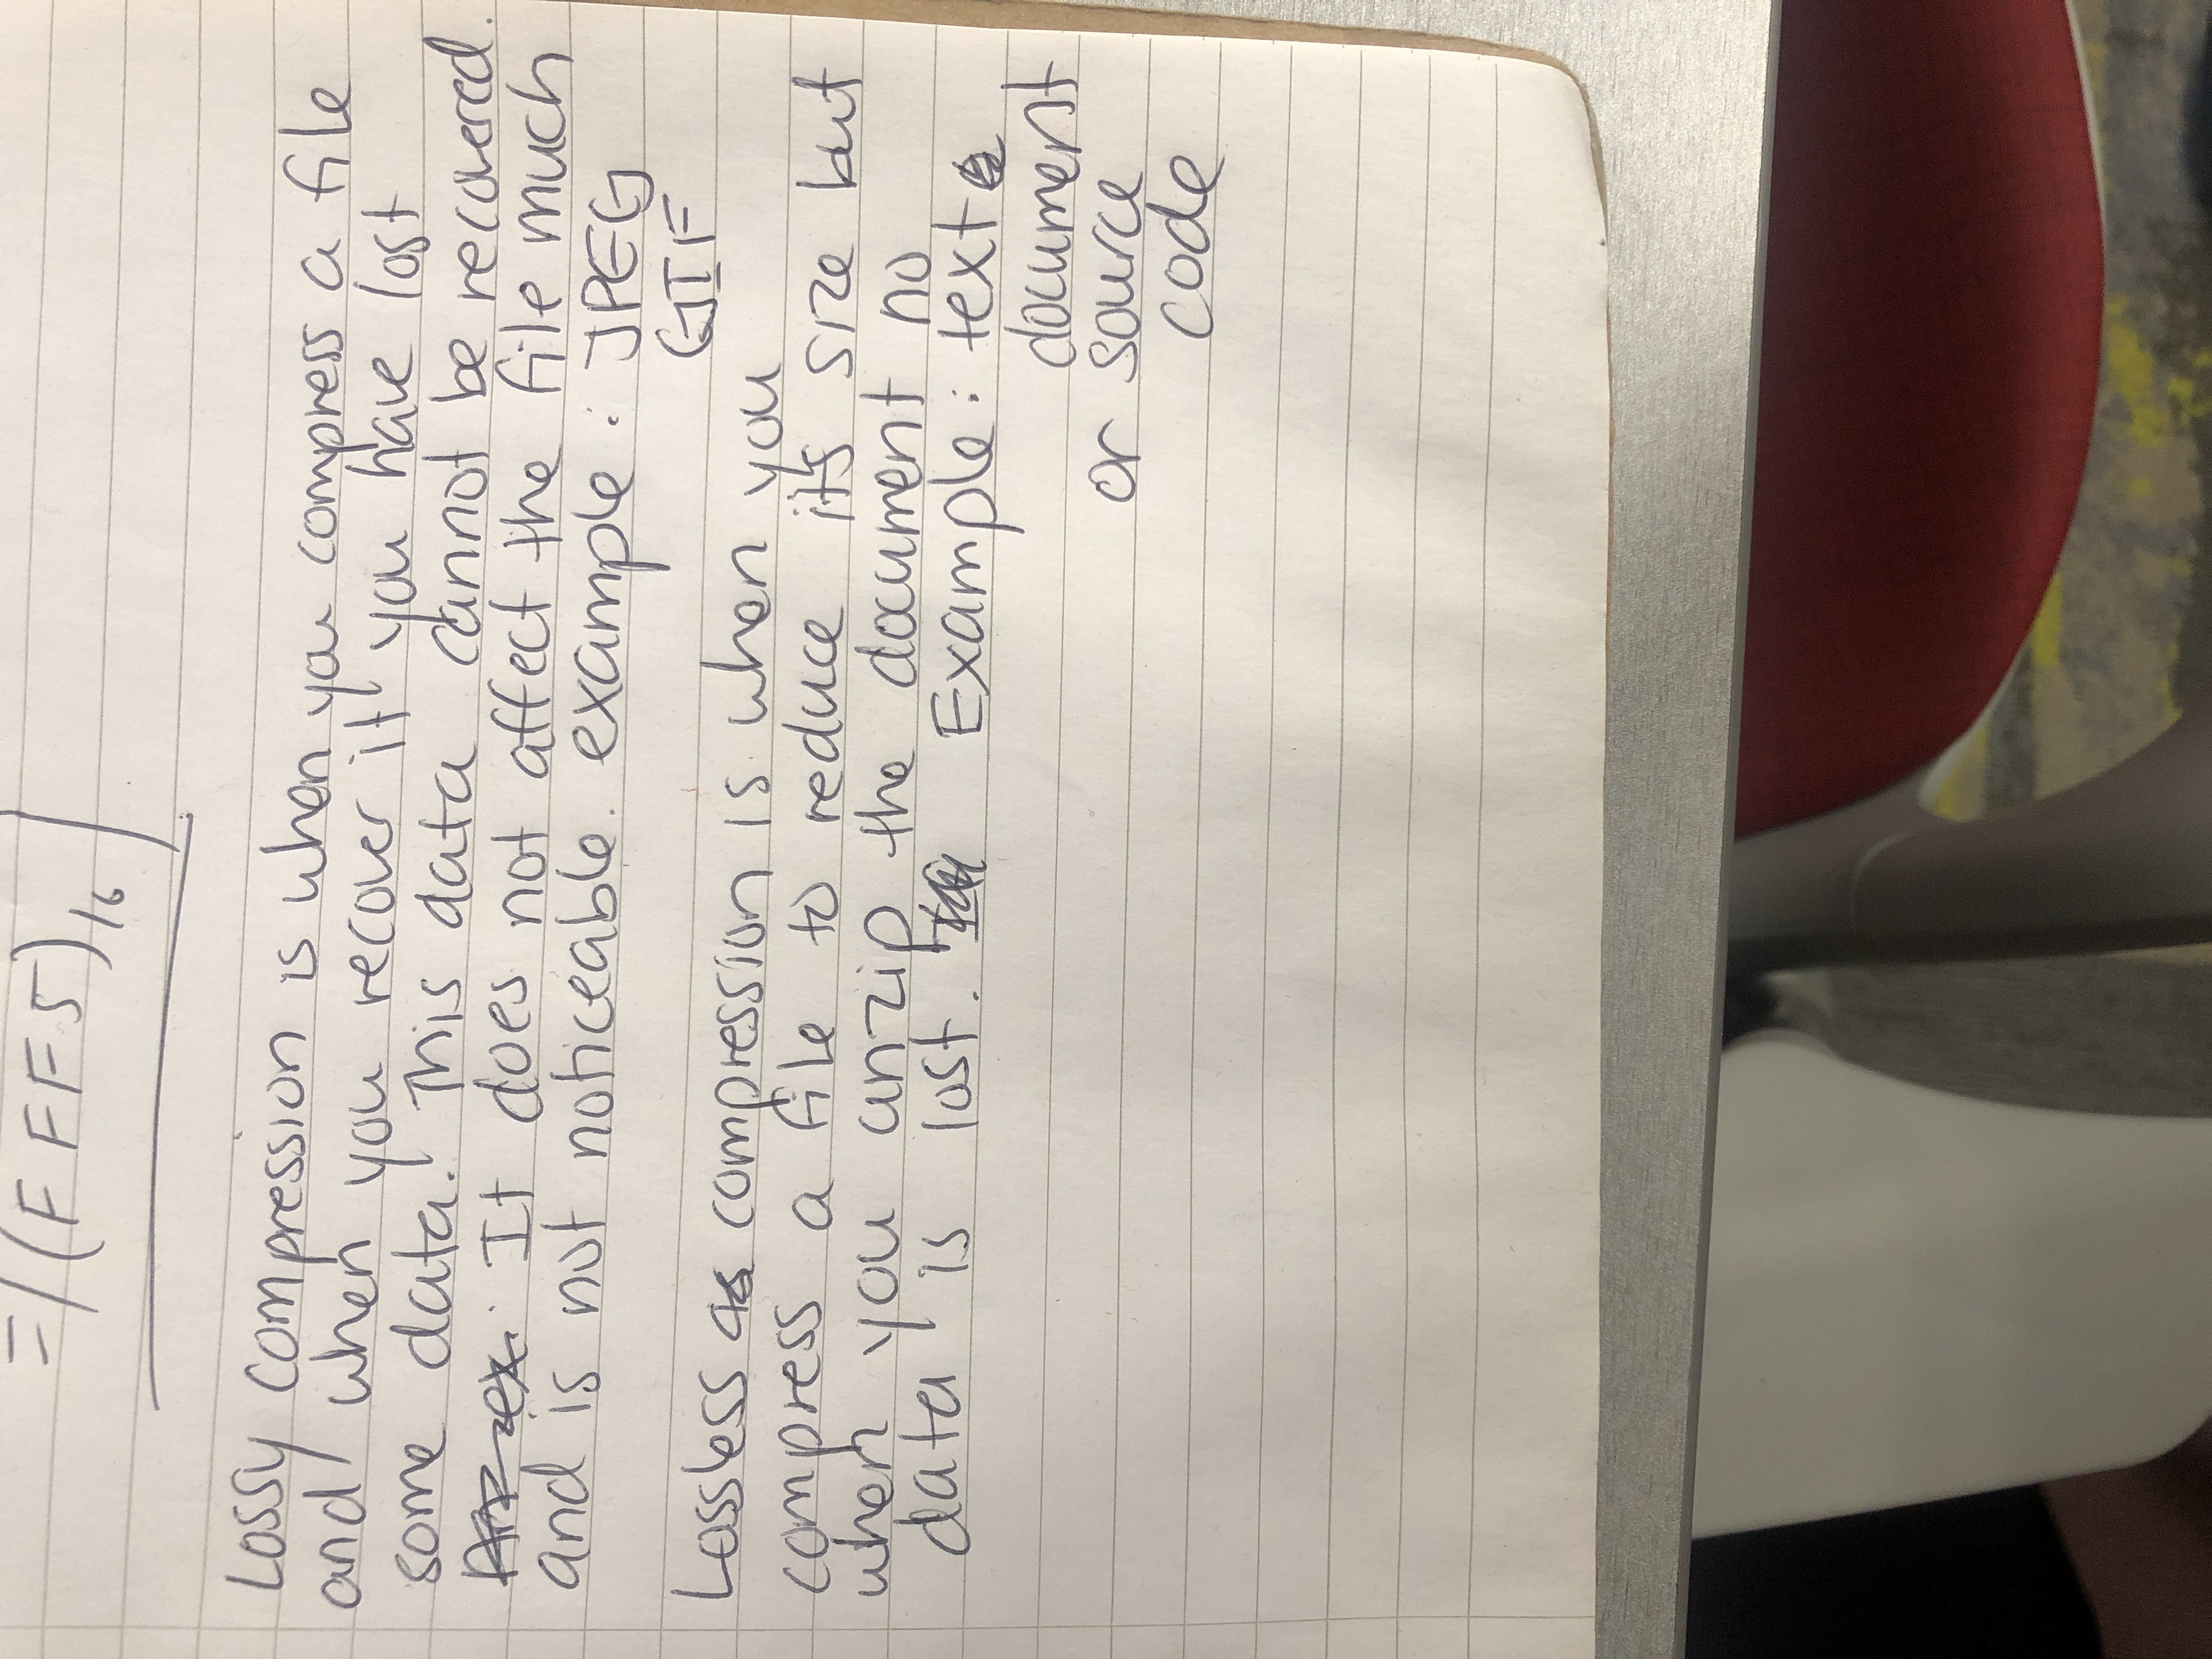 = (FFF5)16
Lossy compression is when you compress a file
and when you recover it you have lost
some data. This data cannot be recovered.
It does not affect the file much
and is not noticeable. example : JPEG
GIF
Lossless compression is when you
compress a file to reduce its size but
when you unzip the document no
data is lost. Example : text
document
or source
code